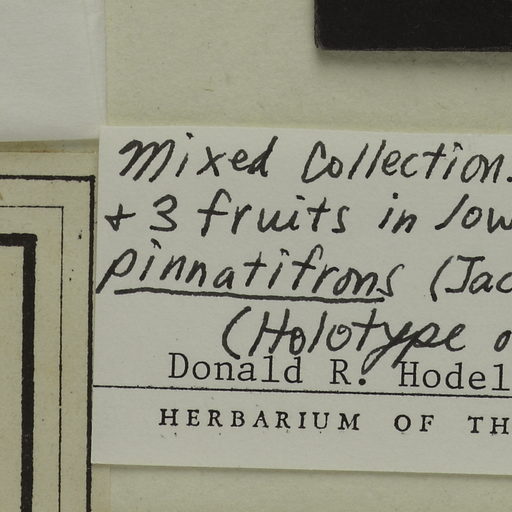 Mixed Collection.
+ 3 fruits in low
pinnatifrons (Jac
(Holotype o
Donald R. Hodel
HERBARIUM OF TH